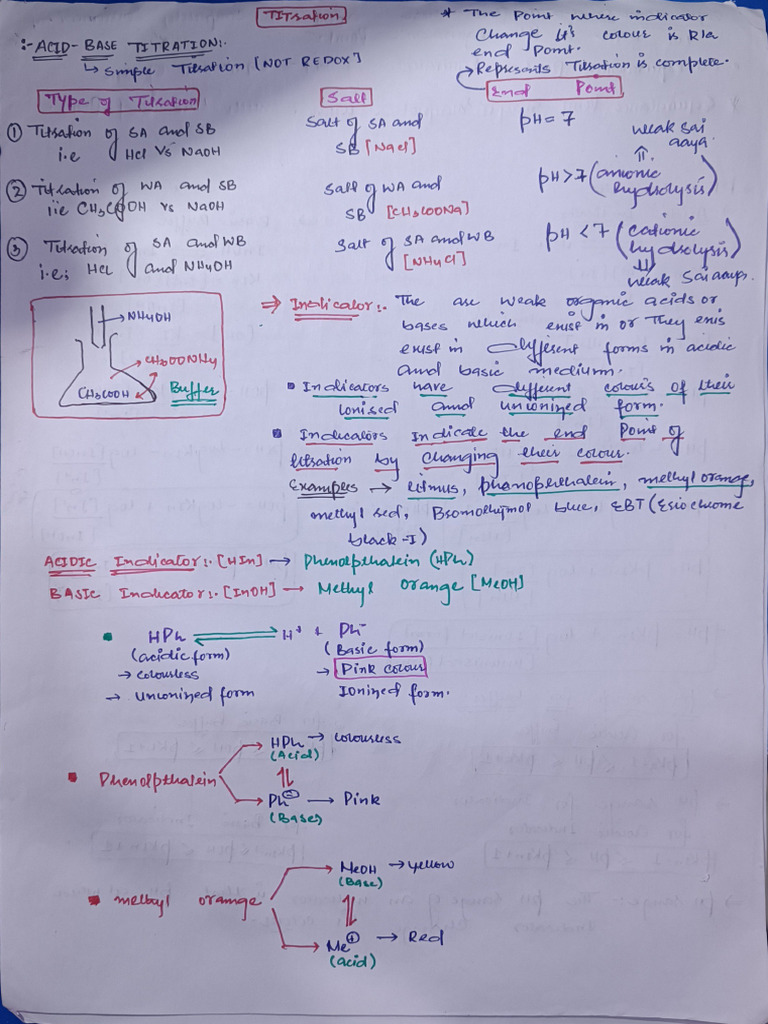 Titration
* The Point where indicator
change it's colour is k/a
end Point.
→ Represents Titration is complete.
:- ACID - BASE TITRATION:-
↳ Simple Titration [NOT REDOX]
Type of Titration
Salt
End Point
① Titration of SA and SB
i.e HCl Vs NaOH
Salt of SA and
SB [NaCl]
pH = 7
② Titration of WA and SB
iie CH₃COOH vs NaOH
Salt of WA and
SB [CH₃COONa]
weak sai
aaya.
⇑
pH > 7 (anionic
hydrolysis)
③ Titration of SA and WB
i.e; HCl and NH₄OH
Salt of SA and WB
[NH₄Cl]
pH < 7 (cationic
hydrolysis)
⇓
weak Sai aaya.
→ NH₄OH
→ CH₃COONH₄
CH₃COOH
Buffer
⇒ Indicator:- The are weak organic acids or
bases which exist in or They exis
exist in different forms in acidic
and basic medium.
▪ Indicators have different colours of their
ionised and unionized form.
▪ Indicators Indicate the end Point of
titration by changing their colour.
Examples → litmus, phanophthalein, methyl orange,
methyl red, Bromothymol blue, EBT (Eriochrome
black-T)
ACIDIC Indicator:- [HIn] → Phenolpthalein (HPh)
BASIC Indicator:- [InOH] → Methyl orange [MeOH]
▪ HPh ⇌ H⁺ + Ph⁻
(acidic form) (Basic form)
→ colourless → Pink colour
→ Unionized form Ionized form.
▪ Phenolpthalein
HPh → colourless
(Acid)
⇅
Ph⊖ → Pink
(Bases)
▪ methyl orange
MeOH → yellow
(Base)
⇅
Me⊕ → Red
(acid)